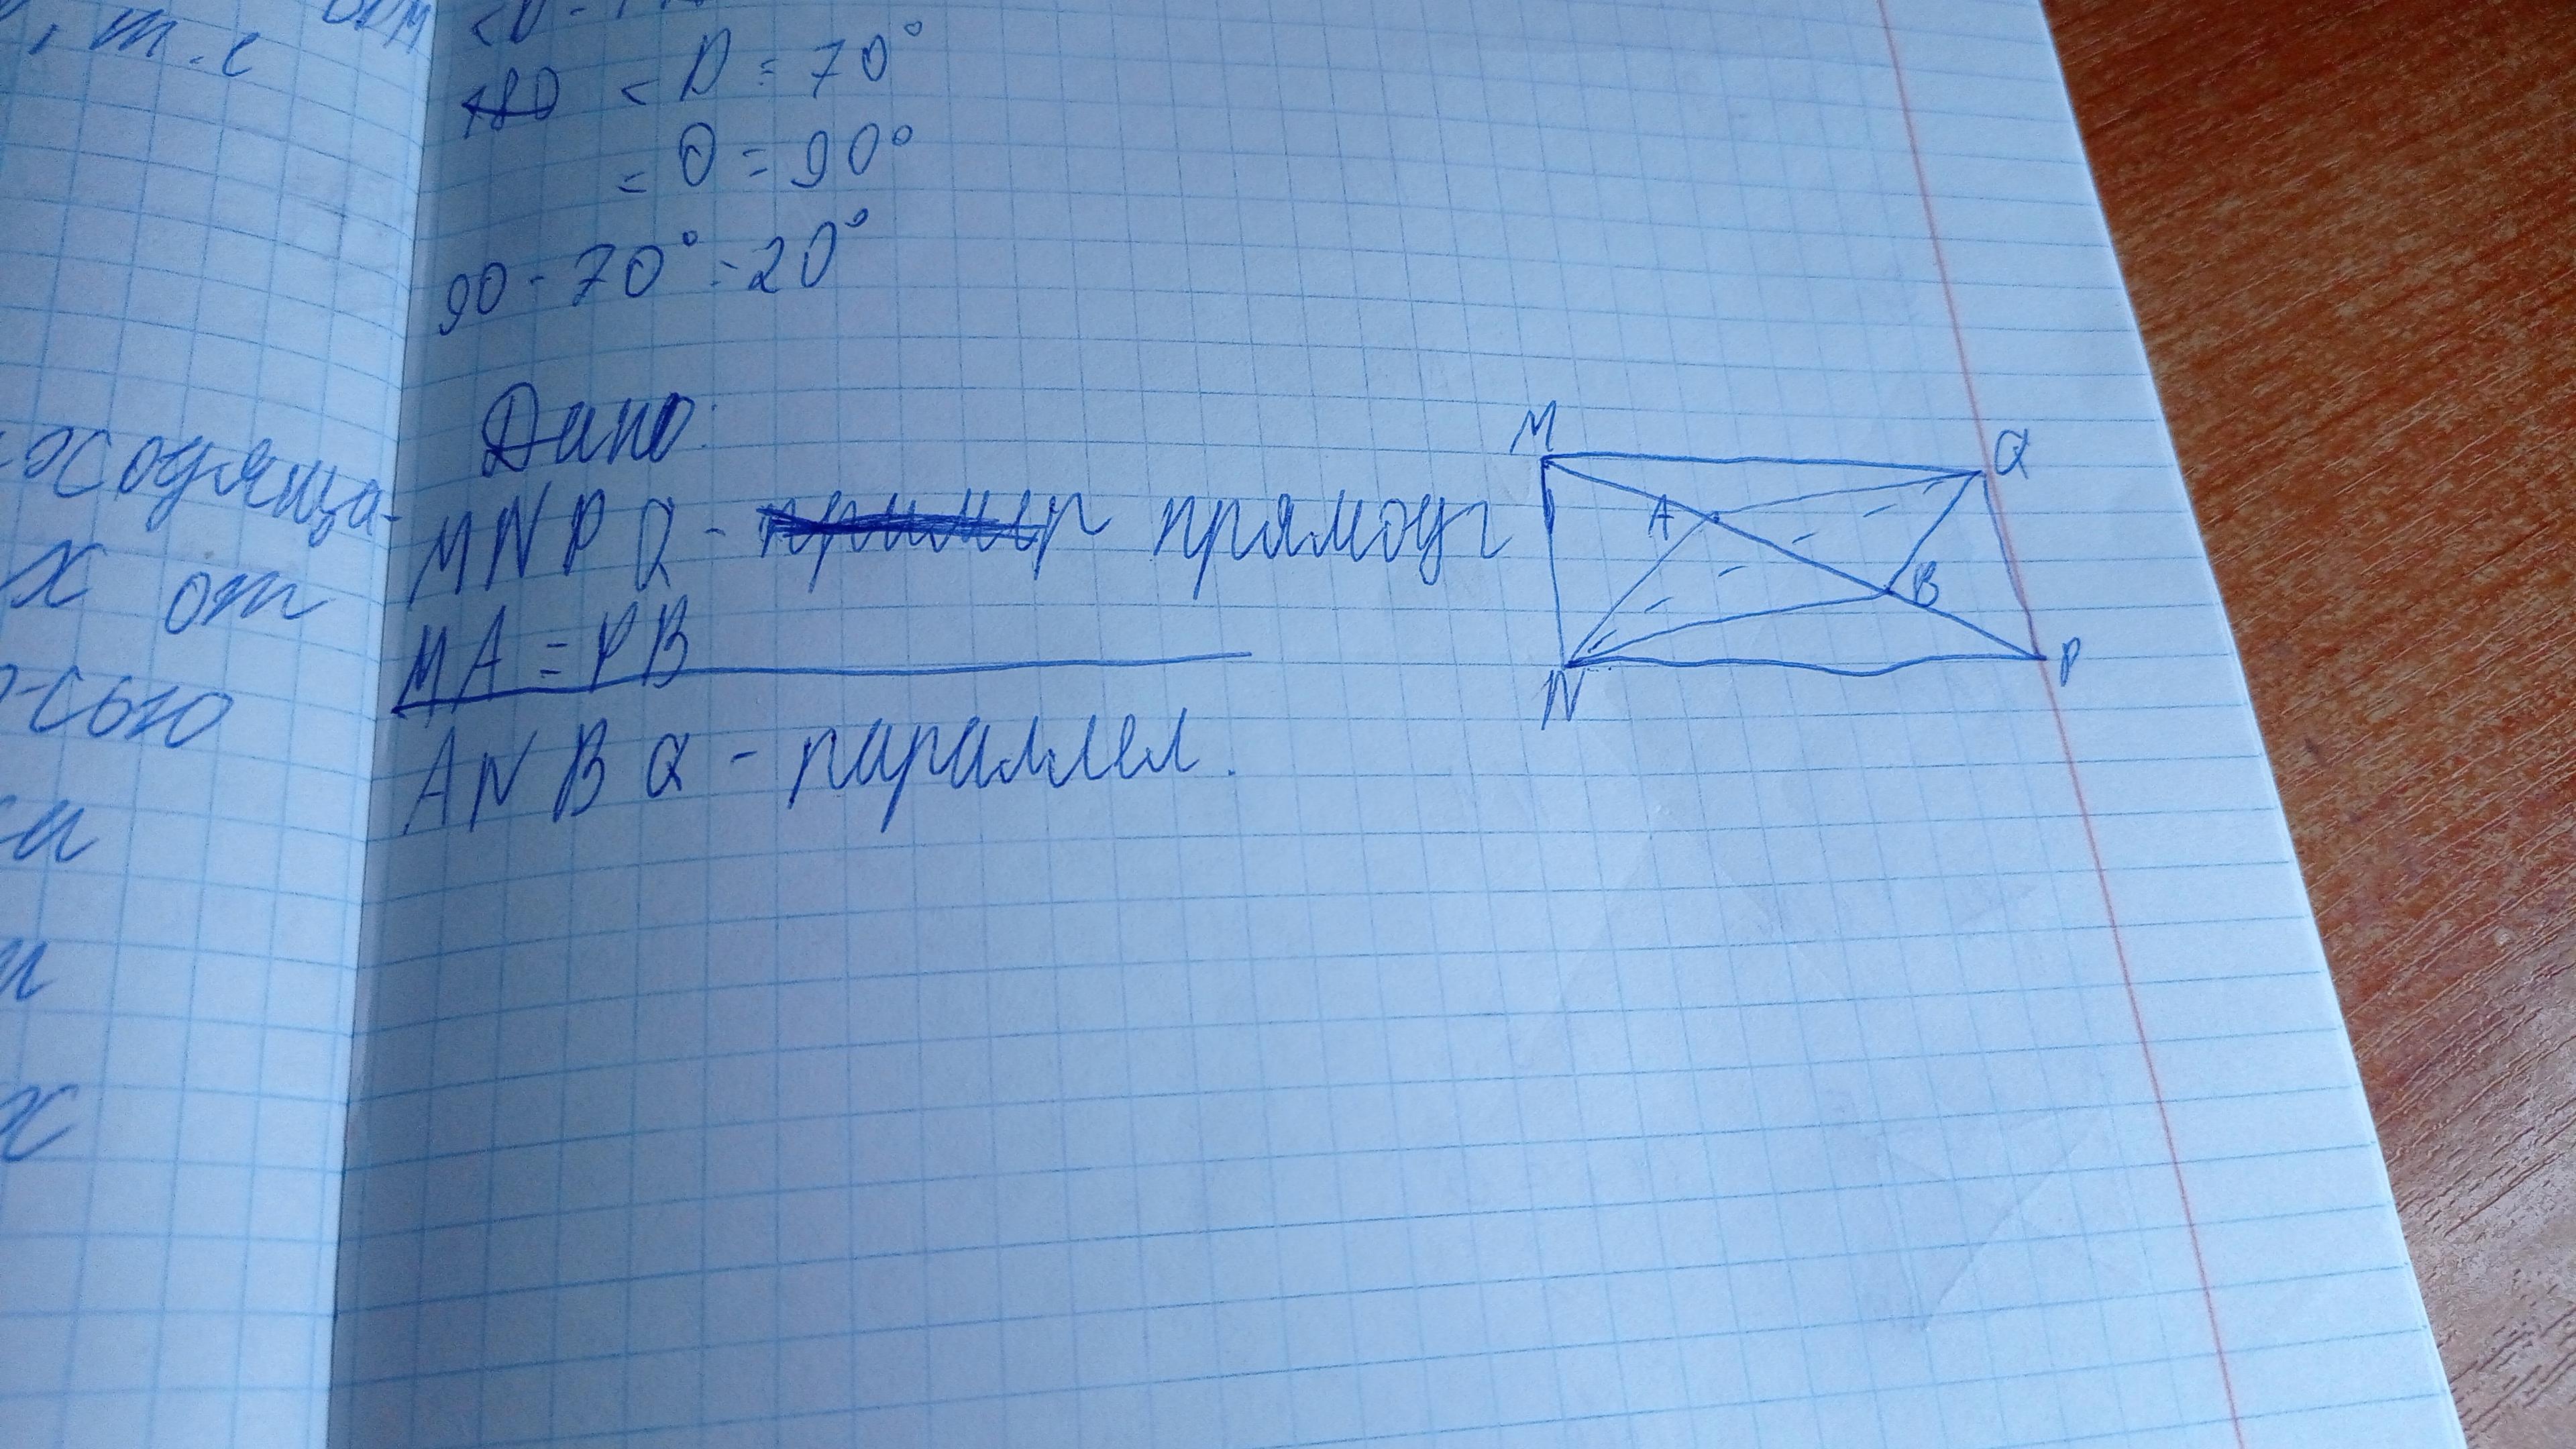 , т.е
ходяща-
х от
-сью
и
х
< D = 70°
= O = 90°
90 - 70° = 20°
Дано:
MNPQ - прямоуг
MA = PB
ANBQ - параллел.
M
Q
A
B
N
P